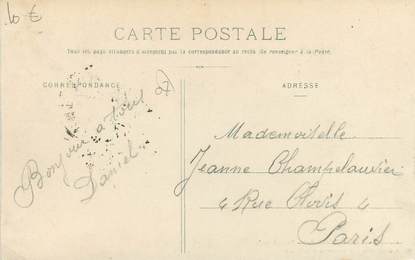 10 €
CARTE POSTALE
Tous les pays étrangers n'acceptent pas la correspondance au recto (Se renseigner à la Poste).
CORRESPONDANCE
ADRESSE
Bonjour a tous
Daniel
Mademoiselle
Jeanne Champelauvier
4 Rue Clovis 4
Paris